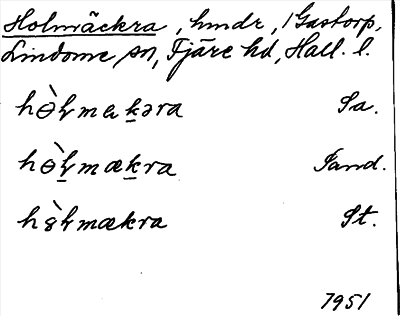 Holmäckra, hmdr, i Gastorp,
Lindome sn, Fjäre hd, Hall. l.
hɵ̀ɬmakəra Sa.
hɵ̀ɬmækra Sand.
h8̀ɬmækra St.
1951